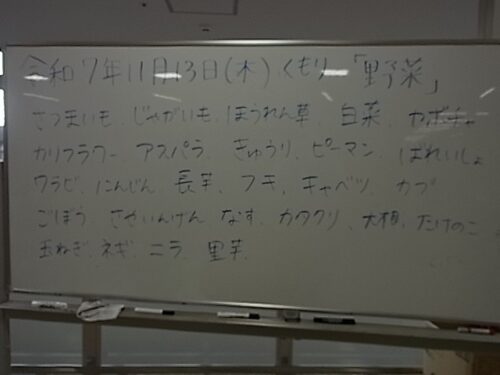 令和7年11月13日(木) くもり 「野菜」
さつまいも、じゃがいも、ほうれん草、白菜、カボチャ
カリフラワー、アスパラ、きゅうり、ピーマン、ばれいしょ
ワラビ、にんじん、長芋、フキ、キャベツ、カブ
ごぼう、さやいんげん、なす、カタクリ、大根、たけのこ
玉ねぎ、ネギ、ニラ、里芋